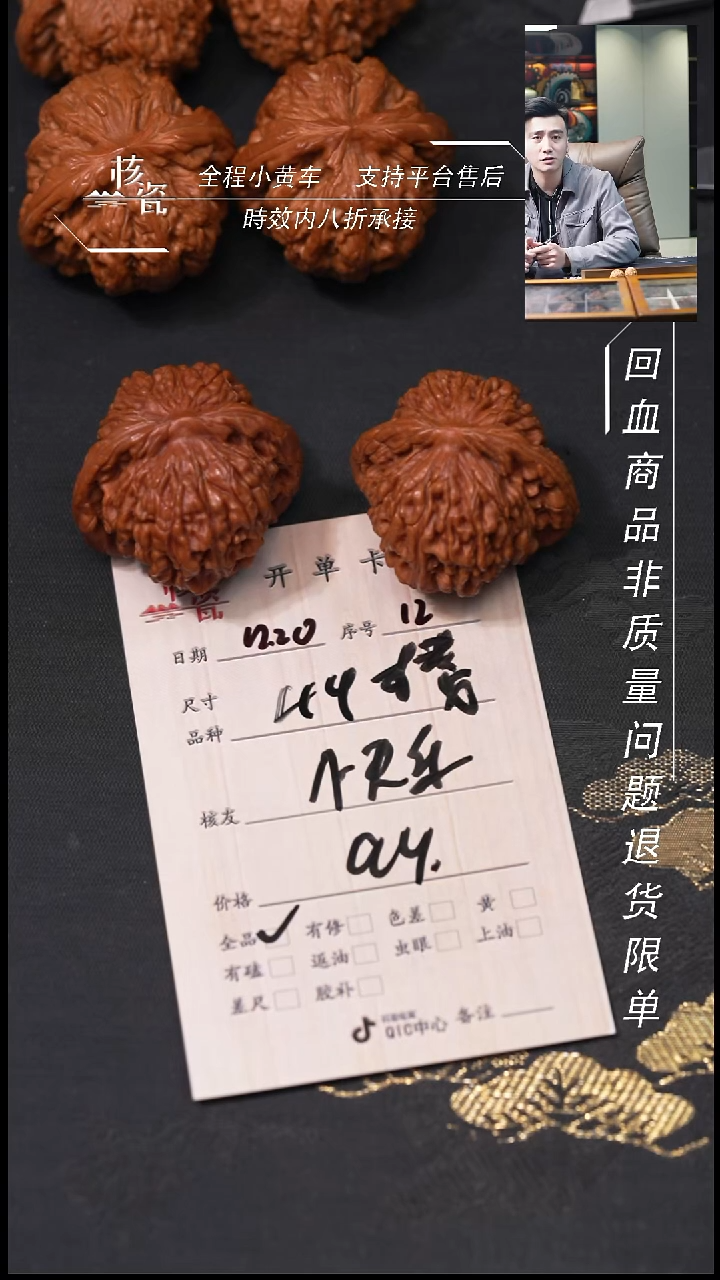 核瓷
全程小黄车 支持平台售后
時效内八折承接
回血商品非质量问题退货限单
开单卡
日期 12.20 序号 12
尺寸 44
品种
核友
价格
全品 ✓ 有修 色差 黄
有磕 返油 虫眼 上油
差尺 胶补
QIC中心 备注